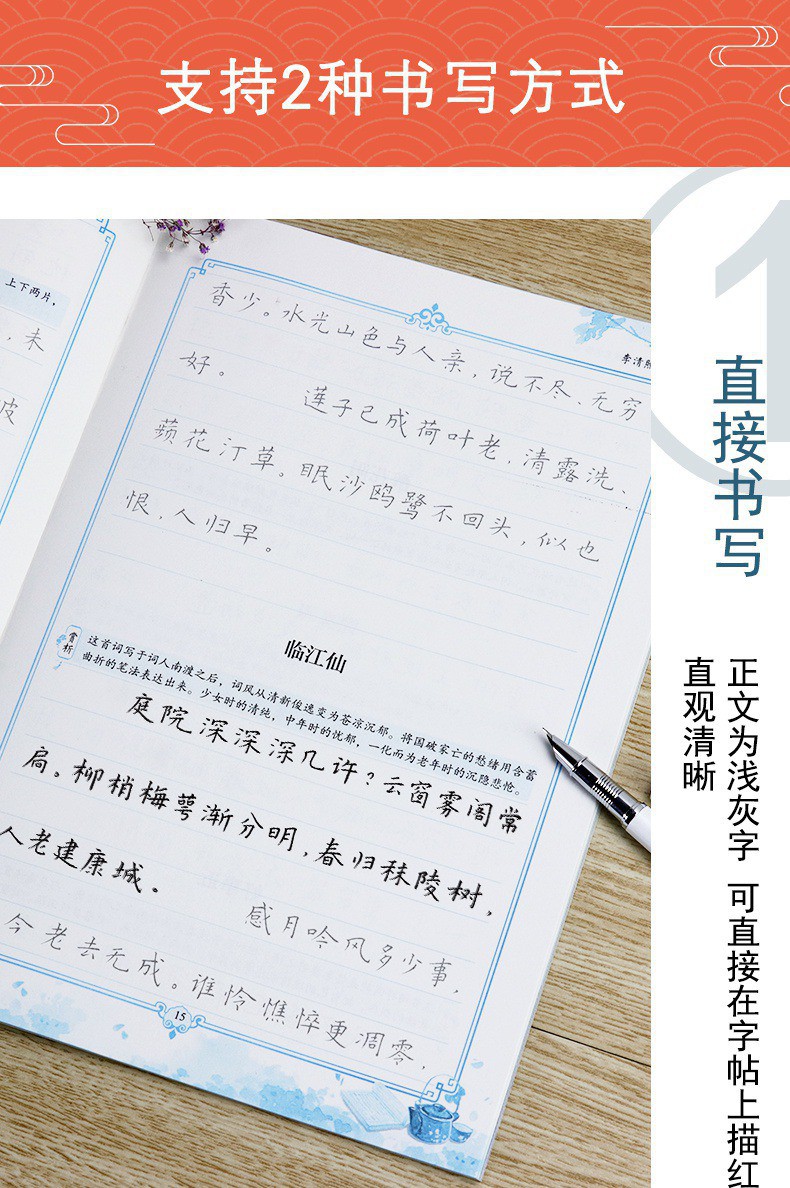 支持2种书写方式
1
直接书写
正文为浅灰字 可直接在字帖上描红
直观清晰
上下两片，
，未
李清照
香少。水光山色与人亲，说不尽、无穷
好。 莲子已成荷叶老，清露洗、
蘋花汀草。眠沙鸥鹭不回头，似也
恨，人归早。
临江仙
赏析
这首词写于词人南渡之后，词风从清新俊逸变为苍凉沉郁。将国破家亡的愁绪用含蓄
曲折的笔法表达出来。少女时的清纯，中年时的忧郁，一化而为老年时的沉隐悲怆。
庭院深深深几许？云窗雾阁常
扃。柳梢梅萼渐分明，春归秣陵树，
人老建康城。
感月吟风多少事，
今老去无成。谁怜憔悴更凋零，
15